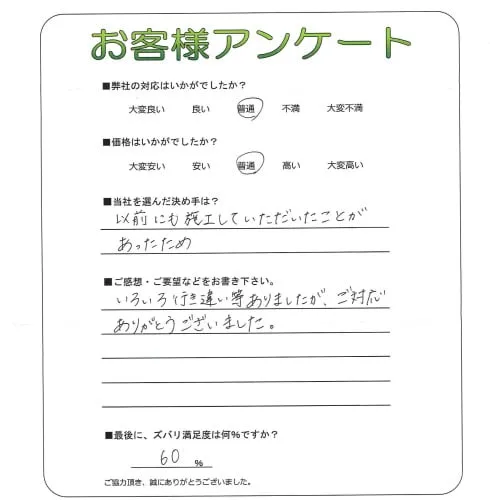 お客様アンケート
■弊社の対応はいかがでしたか?
大変良い 良い 普通 不満 大変不満
■価格はいかがでしたか?
大変安い 安い 普通 高い 大変高い
■当社を選んだ決め手は?
以前にも施工していただいたことが
あったため
■ご感想・ご要望などをお書き下さい。
いろいろ行き違い等ありましたが、ご対応
ありがとうございました。
■最後に、ズバリ満足度は何%ですか?
60 %
ご協力頂き、誠にありがとうございました。